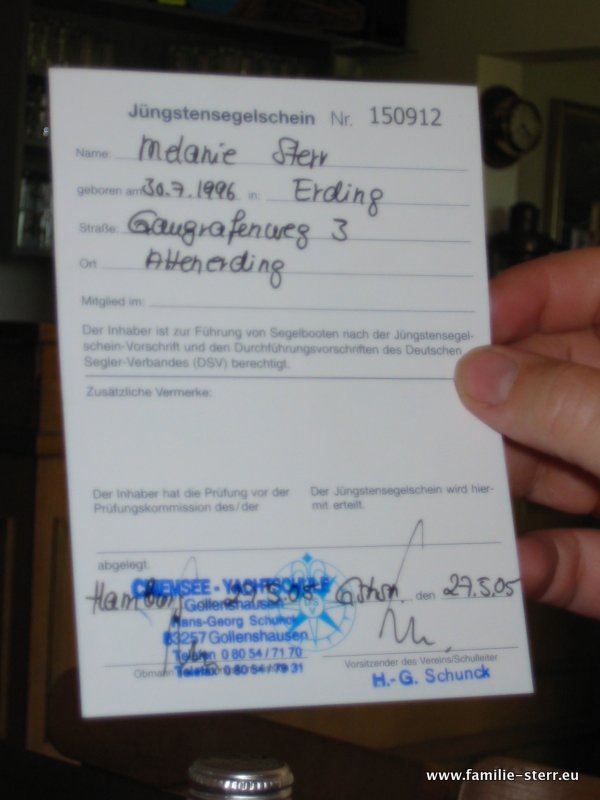 Jüngstensegelschein Nr. 150912
Name: Melanie Sterr
geboren am 30.7.1996 in: Erding
Straße: Gaugrafenweg 3
Ort Altenerding
Mitglied im:
Der Inhaber ist zur Führung von Segelbooten nach der Jüngstensegel-
schein-Vorschrift und den Durchführungsvorschriften des Deutschen
Segler-Verbandes (DSV) berechtigt.
Zusätzliche Vermerke:
Der Inhaber hat die Prüfung vor der
Prüfungskommission des/der
Der Jüngstensegelschein wird hier-
mit erteilt.
abgelegt.
CHIEMSEE - YACHTSCHULE
Hamburg 27.5.05 Gshn. den 27.5.05
Gollenshausen
Hans-Georg Schunck
83257 Gollenshausen
Telefon 0 80 54 / 71 70
Telefax 0 80 54 / 79 31
Obmann
Vorsitzender des Vereins/Schulleiter
H.- G. Schunck
www.familie-sterr.eu